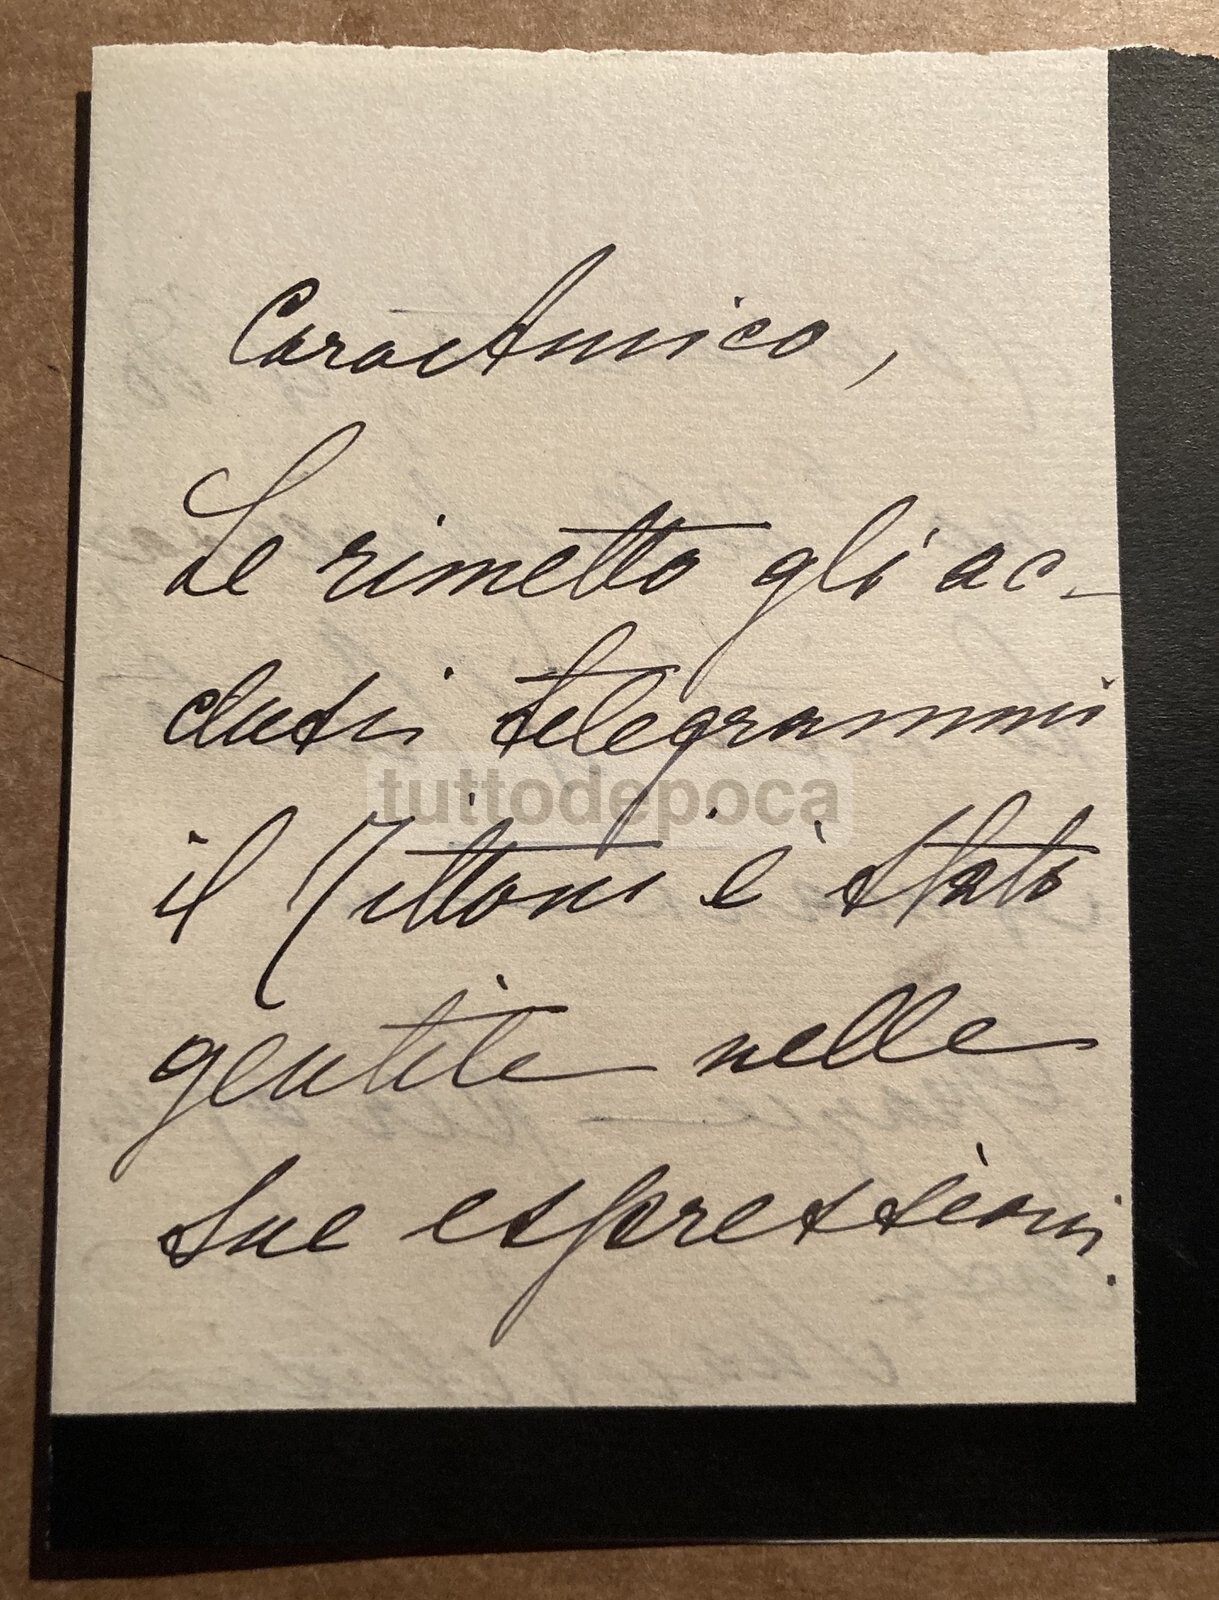 Caro Amico,
Le rimetto gli ac-
clusi telegrammi
il Tittoni è stato
gentile nelle
sue espressioni.
tuttodepoca